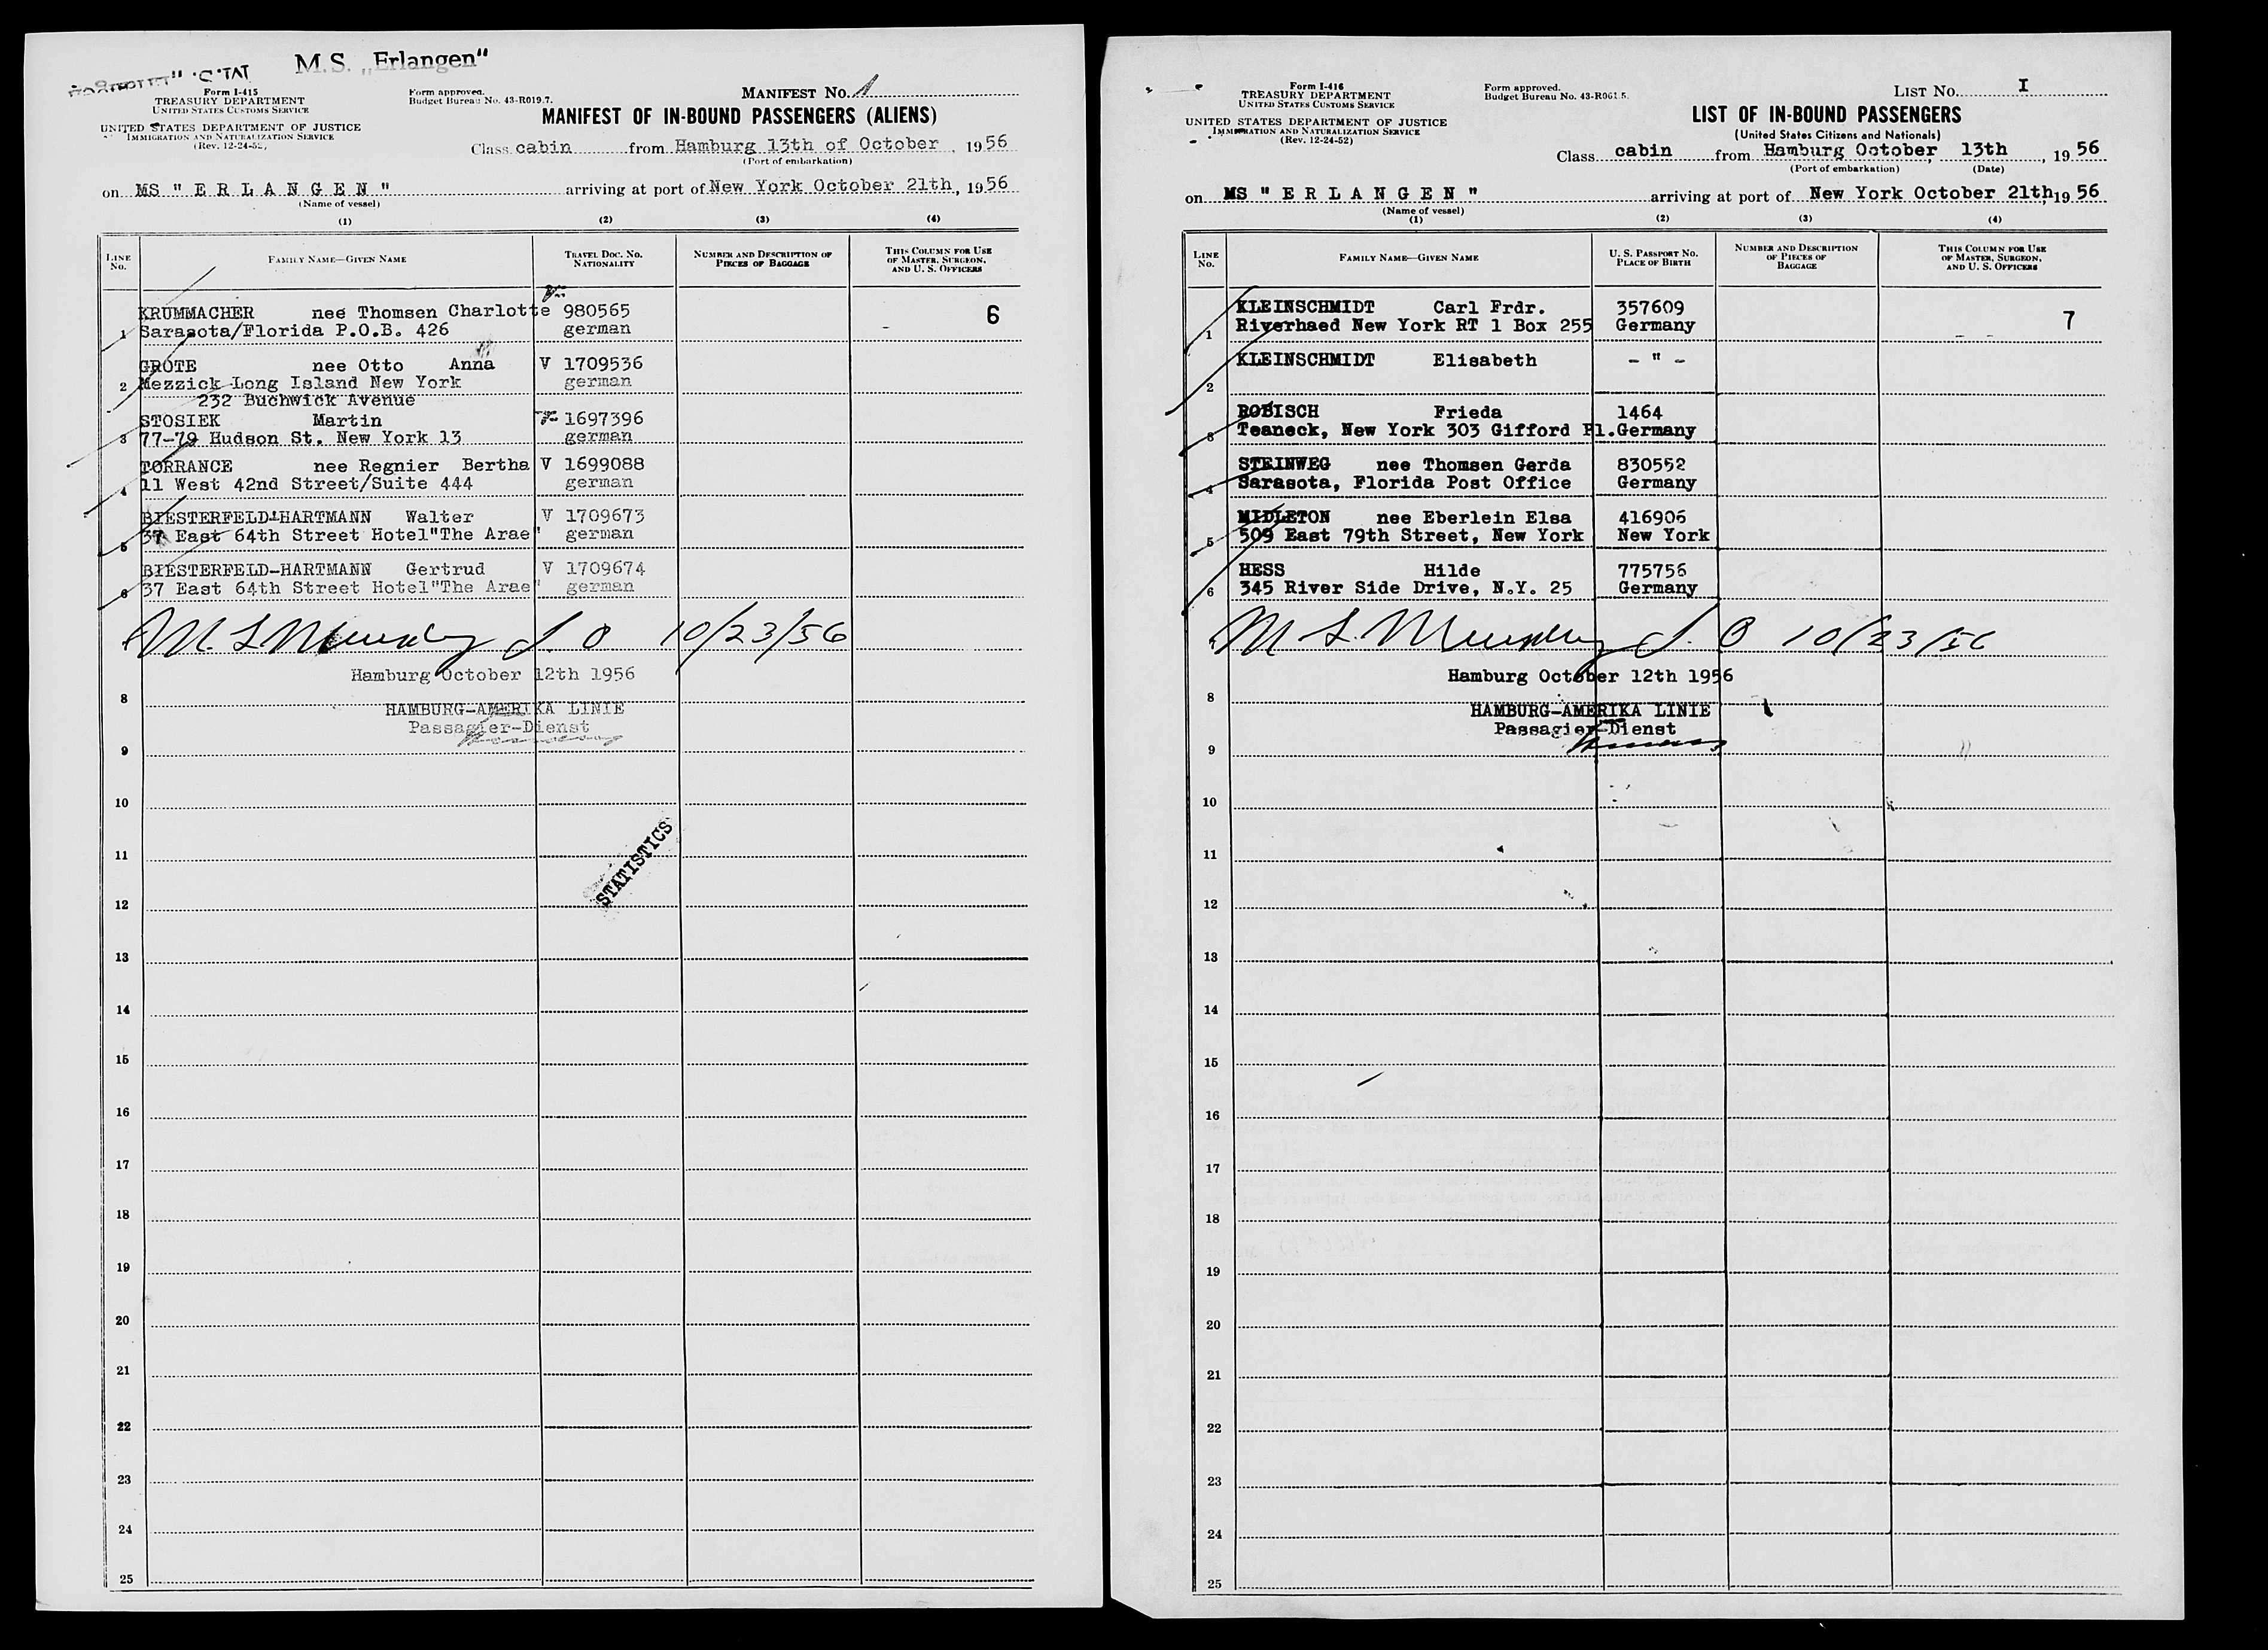 M.S. „Erlangen"
Form I-415
TREASURY DEPARTMENT
UNITED STATES CUSTOMS SERVICE
UNITED STATES DEPARTMENT OF JUSTICE
IMMIGRATION AND NATURALIZATION SERVICE
(Rev. 12-24-52)
Form approved.
Budget Bureau No. 43-R019.7.
MANIFEST No. 1
MANIFEST OF IN-BOUND PASSENGERS (ALIENS)
Class cabin from Hamburg 13th of October, 1956
(Port of embarkation)
on MS " E R L A N G E N " arriving at port of New York October 21th, 1956
(Name of vessel)
(1) (2) (3) (4)
LINE No. FAMILY NAME—GIVEN NAME TRAVEL DOC. NO. NATIONALITY NUMBER AND DESCRIPTION OF PIECES OF BAGGAGE THIS COLUMN FOR USE OF MASTER, SURGEON, AND U. S. OFFICERS
KRUMMACHER nee Thomsen Charlotte 980565 6
1 Sarasota/Florida P.O.B. 426 german
GROTE nee Otto Anna V 1709536
2 Mezzick Long Island New York german
232 Buchwick Avenue
STOSIEK Martin 1697396
3 77-79 Hudson St. New York 13 german
TORRANCE nee Regnier Bertha V 1699088
4 11 West 42nd Street/Suite 444 german
BIESTERFELD-HARTMANN Walter V 1709673
5 37 East 64th Street Hotel"The Arae" german
BIESTERFELD-HARTMANN Gertrud V 1709674
6 37 East 64th Street Hotel"The Arae" german
10/23/56
Hamburg October 12th 1956
8
HAMBURG-AMERIKA LINIE
Passagier-Dienst
9
10
11
STATISTICS
12
13
14
15
16
17
18
19
20
21
22
23
24
25
Form I-416
TREASURY DEPARTMENT
UNITED STATES CUSTOMS SERVICE
UNITED STATES DEPARTMENT OF JUSTICE
IMMIGRATION AND NATURALIZATION SERVICE
(Rev. 12-24-52)
Form approved.
Budget Bureau No. 43-R061.5.
LIST No. I
LIST OF IN-BOUND PASSENGERS
(United States Citizens and Nationals)
Class cabin from Hamburg October, 13th, 1956
(Port of embarkation) (Date)
on MS " E R L A N G E N " arriving at port of New York October 21th, 1956
(Name of vessel)
(1) (2) (3) (4)
LINE No. FAMILY NAME—GIVEN NAME U. S. PASSPORT NO. PLACE OF BIRTH NUMBER AND DESCRIPTION OF PIECES OF BAGGAGE THIS COLUMN FOR USE OF MASTER, SURGEON, AND U. S. OFFICERS
KLEINSCHMIDT Carl Frdr. 357609 7
1 Riverhaed New York RT 1 Box 255 Germany
KLEINSCHMIDT Elisabeth - " -
2
ROBISCH Frieda 1464
3 Teaneck, New York 303 Gifford Pl. Germany
STEINWEG nee Thomsen Gerda 830552
4 Sarasota, Florida Post Office Germany
MIDLETON nee Eberlein Elsa 416906
5 509 East 79th Street, New York New York
HESS Hilde 775756
6 345 River Side Drive, N.Y. 25 Germany
10/23/56
Hamburg October 12th 1956
8
HAMBURG-AMERIKA LINIE
Passagier-Dienst
9
10
11
12
13
14
15
16
17
18
19
20
21
22
23
24
25